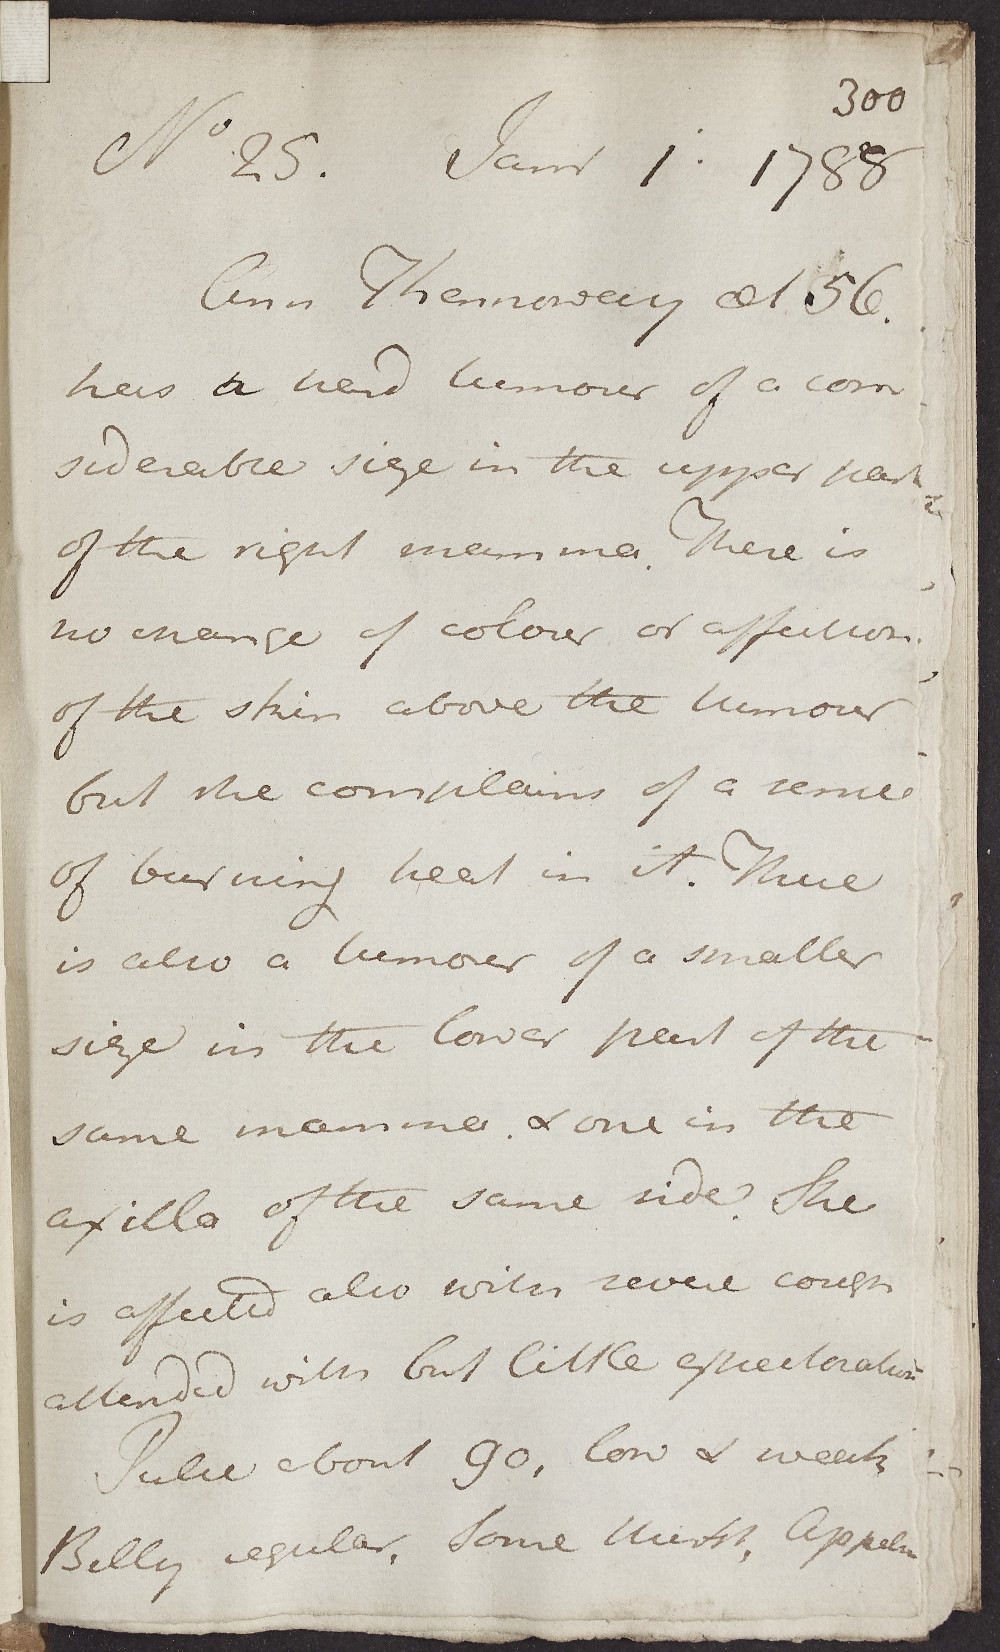 300
No 25. Janr 1. 1788
Ann æt. 56.
has a hard tumour of a con
siderable size in the upper part
of the right mamma. There is
no change of colour or affection
of the skin above the tumour
but she complains of a sense
of burning heat in it. There
is also a tumour of a smaller
size in the lower part of the
same mamma & one in the
axilla of the same side. She
is affected also with severe cough
attended with but little expectoration
Pulse about 90, low & weak
Belly regular, Some thirst, Appetite